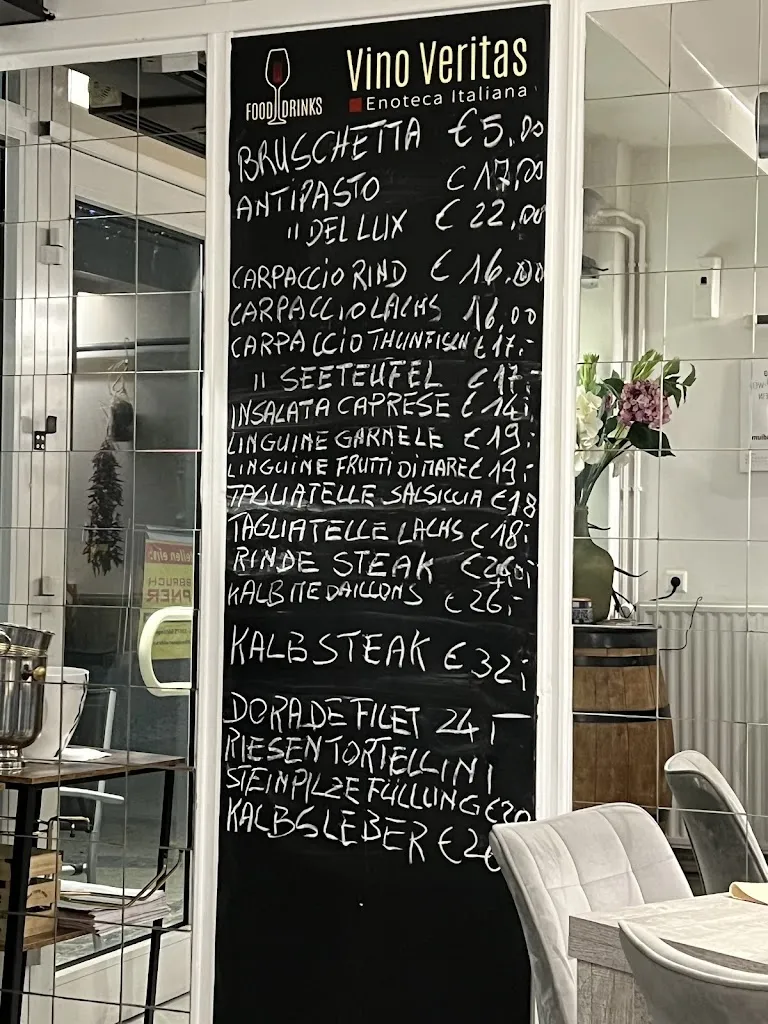 Vino Veritas
FOOD DRINKS
Enoteca Italiana
BRUSCHETTA €5,00
ANTIPASTO €17,00
" DELLUX €22,00
CARPACCIO RIND €16,00
CARPACCIO LACHS 16,00
CARPACCIO THUNFISCH €17,-
" SEETEUFEL €17,-
INSALATA CAPRESE €14,-
LINGUINE GARNELE €19,-
LINGUINE FRUTTI DI MARE €19,-
TAGLIATELLE SALSICCIA €18
TAGLIATELLE LACHS €18,-
RINDE STEAK
KALBMEDAILLONS €26,-
KALBSTEAK €32,-
DORADE FILET 24,-
RIESENTORTELLINI
STEINPILZE FÜLLUNG €20
KALBSLEBER